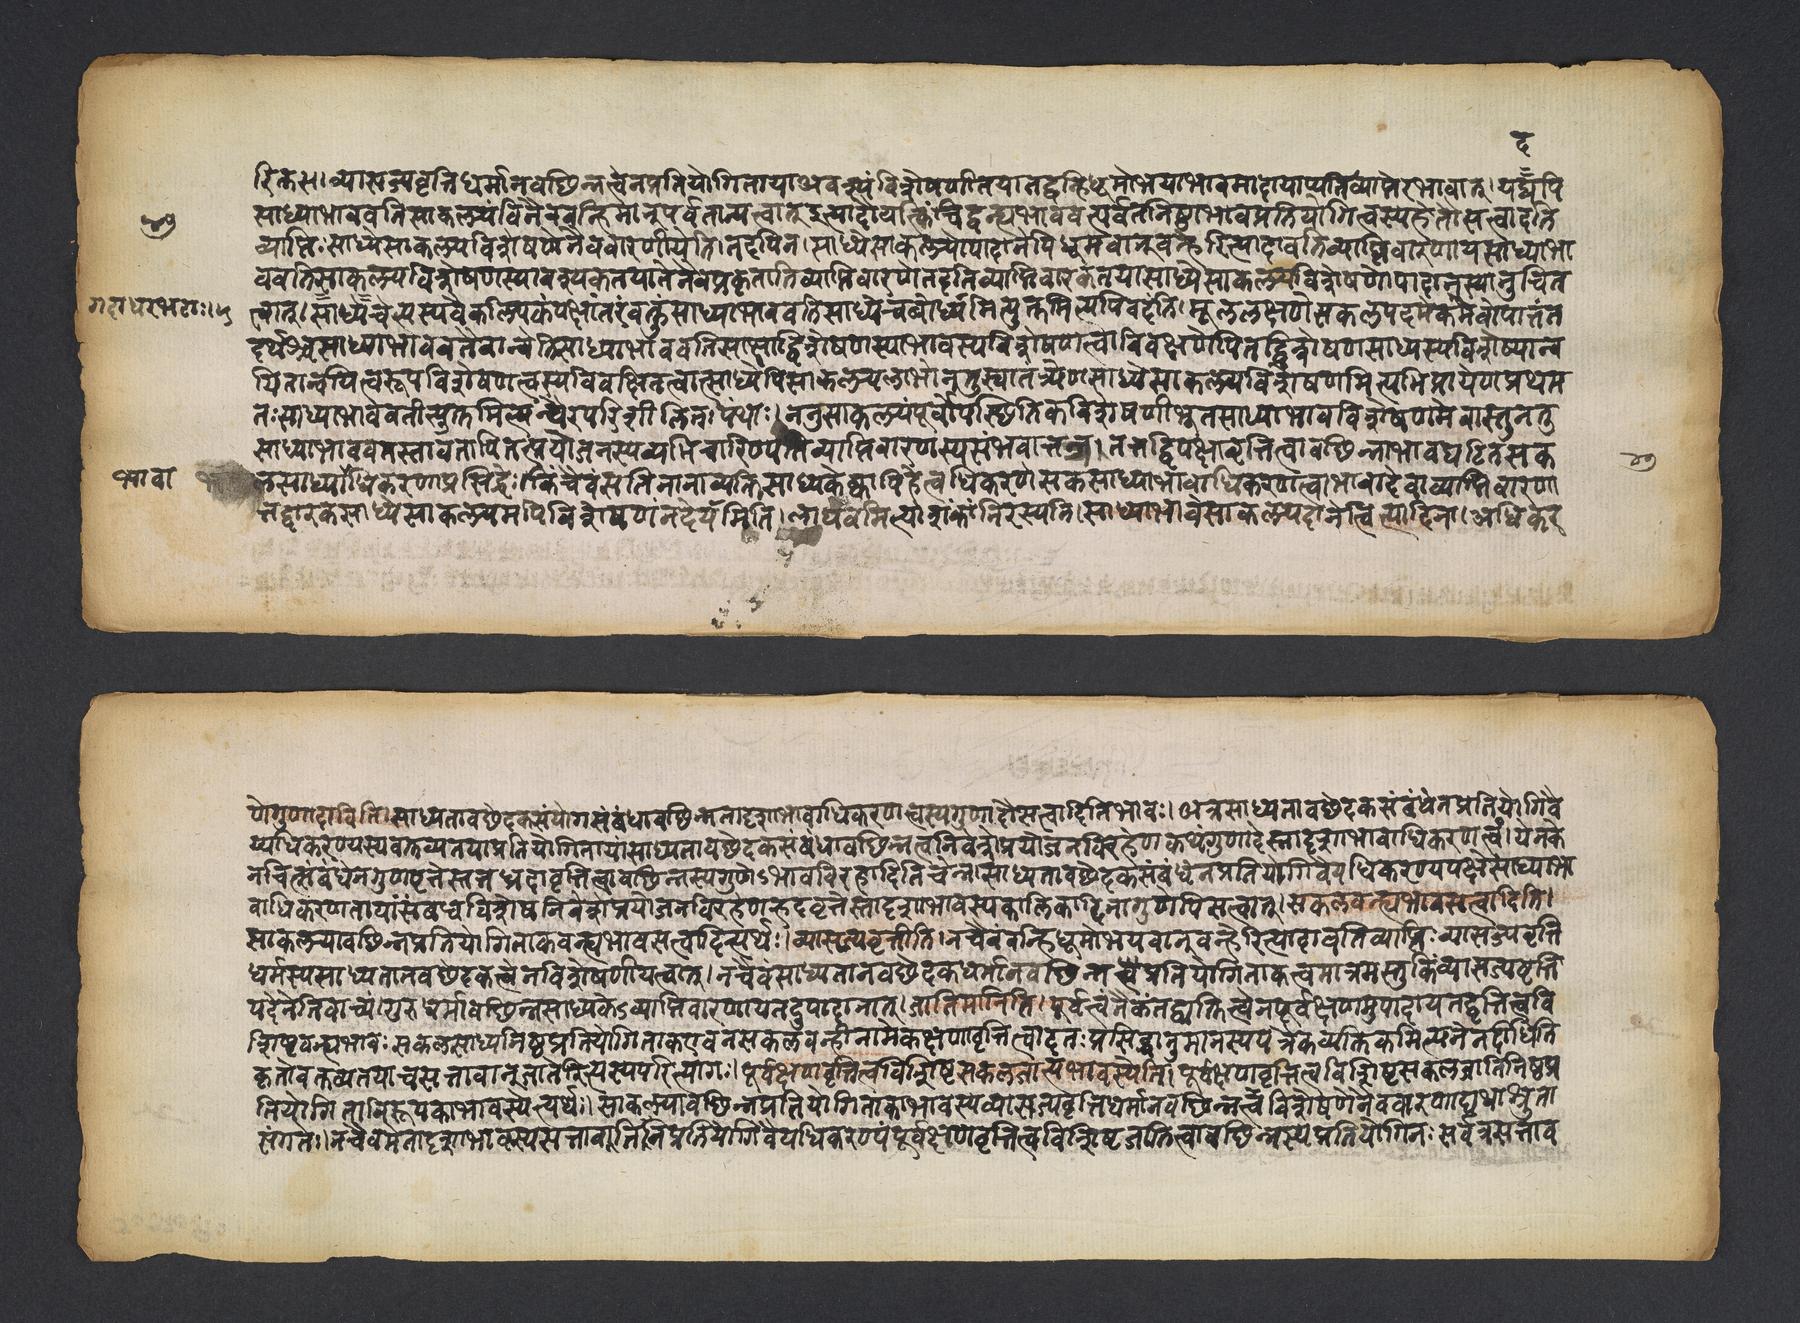 द
रिक्तस। व्यासज्यवृत्तिधर्मानवछिन्नत्वेनप्रतियोगिताया अवश्यंविशेषणीतयातद्वह्निधूमोभयाभावमादायाप्यतिव्याप्तेरभावात्। यद्यपि
साध्याभाववतिसाकल्यंविनैववन्हिमान्पर्वतान्यत्वात् इत्यादौयत्किंचिद्वन्ह्यभाववत्पर्वतनिष्ठाभावप्रतियोगित्वस्यहेतासत्वादति
व्याप्तिः साध्यसाकल्यविशेषणेनैववारणीयेति। तदपिन। साध्यसाकल्योपादानेपिधूमवान्वन्हेरित्यादावतिव्याप्तिवारणायसाध्याभा
ववतिसाकल्यविशेषणस्यावश्यकतयातेनैवप्रकृतातिव्याप्तिवारणेतदतिव्याप्तिवारकतयासाध्येसाकल्यविशेषणोपादानस्यानुचित
गदाधरभट्टाः।५
त्वात्। साध्येचेत्यस्यवैकल्पिकंपक्षांतरंवक्तुंसाध्याभाववतिसाध्येचबोध्यमित्युक्तमित्यपिवदंति। मूललक्षणेसकलपदमेकमेवोपात्तंत
दर्थश्चसाध्याभाववतेवान्वेतिसाध्याभाववतिसाक्षाद्विशेषणस्याभावस्यविशेषणत्वाविवक्षणेपितद्विशेषणसाध्यस्यविशेष्यान्व
यितान्वयित्वरूपविशेषणत्वस्यविवक्षितत्वात्साध्येपिसाकल्यलाभानुतुस्यातत्र्येणसाध्येसाकल्यविशेषणमित्यभिप्रायेणप्रथम
तः साध्याभाववतीत्युक्तमित्यन्यैरपरिशीलितः पंथाः। ननुसाकल्यंपूर्वोपस्थितिकविशेषणीभूतसाध्याभावविशेषणमेवास्तुनतु
साध्याभाववतस्तावतापितत्प्रयोजनस्यव्यभिचारिण्यतिव्याप्तिवारणस्यसंभवात्तत्र। तत्तद्विपक्षावृत्तित्वावछिन्नाभावघटितसक
भावा
लसाध्याधिकरणाप्रसिद्धेः। किंचैवंसतिनानाव्यक्तिसाध्यकेक्वापिहेत्वधिकरणेसकसाध्याभावाधिकरणत्वाभावादेवाव्याप्तिवारणा
त्तद्वारकंसाध्येसाकल्यमपिविशेषणंनदेयमिति। लाघवमित्याशंकांनिरस्यति। साध्याभावेसाकल्यदानेत्वित्यादिना। अधिकर
णेगुणादाविति। साध्यतावछेदकसंयोगसंबंधावछिन्नतादृशाभावाधिकरणत्वस्यगुणादौसत्वादितिभावः। अत्रसाध्यतावछेदकसंबंधेनप्रतियोगिवै
य्यधिकरण्यस्यवक्तव्यतयाप्रतियोगितायांसाध्यतावछेदकसंबंधावछिन्नत्वनिवेशेप्रयोजनविरहेणकथंगुणादेस्तादृशाभावाधिकरणत्वं। येनके
नचित्संबंधेनगुणवृत्तेस्तत्तभेदावृत्तित्वावछिन्नस्यगुणेऽभावविरहादितिचेन्न। साध्यतावछेदकसंबंधेनप्रतियोगिवैयधिकरण्यपक्षेसाध्याभा
वाधिकरणतायांसंबंधविशेषनिवेशेप्रयोजनविरहेणन्हदवृत्तेस्तादृशाभावस्यकालिकादिनागुणेपिसत्वात्। सकलवन्ह्यभावसत्वादिति।
साकल्यावछिन्नप्रतियोगिताकवन्ह्यभावसत्वादित्यर्थः। व्यासज्यवृत्तीति। नचैवंवन्हिधूमोभयवान्वन्हेरित्यादावतिव्याप्तिः व्यासज्यवृत्ति
धर्मस्यसाध्यतानवछेदकत्वेनविशेषणीयत्वात्। नचैवंसाध्यतानवछेदकधर्मानवछिन्नप्रतियोगिताकत्वमात्रमस्तुकिंव्यासज्यवृत्ति
पदेनेतिवाच्यं। गुरुधर्मावछिन्नसाध्यकेऽव्याप्तिवारणायतदुपादानात्। जातिमानिति। पूर्वत्वंनैकंतद्व्यक्तित्वेनपूर्वक्षणमुपादायतद्वृत्तित्ववि
शिष्टवन्ह्यभावेः सकलसाध्यनिष्ठप्रतियोगिताकएवनसकलवन्हीनामेकक्षणावृत्तित्वादतः प्रसिद्धानुमानस्यपर्वत्रैकव्यक्तिकमित्यनेनदीधिति
कृतावक्तव्यतयाचसत्तावान्जातेरित्यस्यपरित्यागः। पूर्वक्षणावृत्तित्वविशिष्टसकलजात्यभावस्येति। पूर्वक्षणावृत्तित्वविशिष्टसकलजातिनिष्ठप्र
तियोगितानिरूपकाभावस्येत्यर्थः। साकल्यावछिन्नप्रतियोगिताकाभावस्यव्यासज्यवृत्तिधर्मानवछिन्नत्वविशेषणेनैववारणाद्यथाश्रुता
संगतेः। नचैवमेतादृशाभावस्यसत्तावानितिप्रतियोगिवैयधिकरण्यंपूर्वक्षणवृत्तित्वविशिष्टजातित्वावछिन्नस्यप्रतियोगिनः सर्वत्रसत्ताव